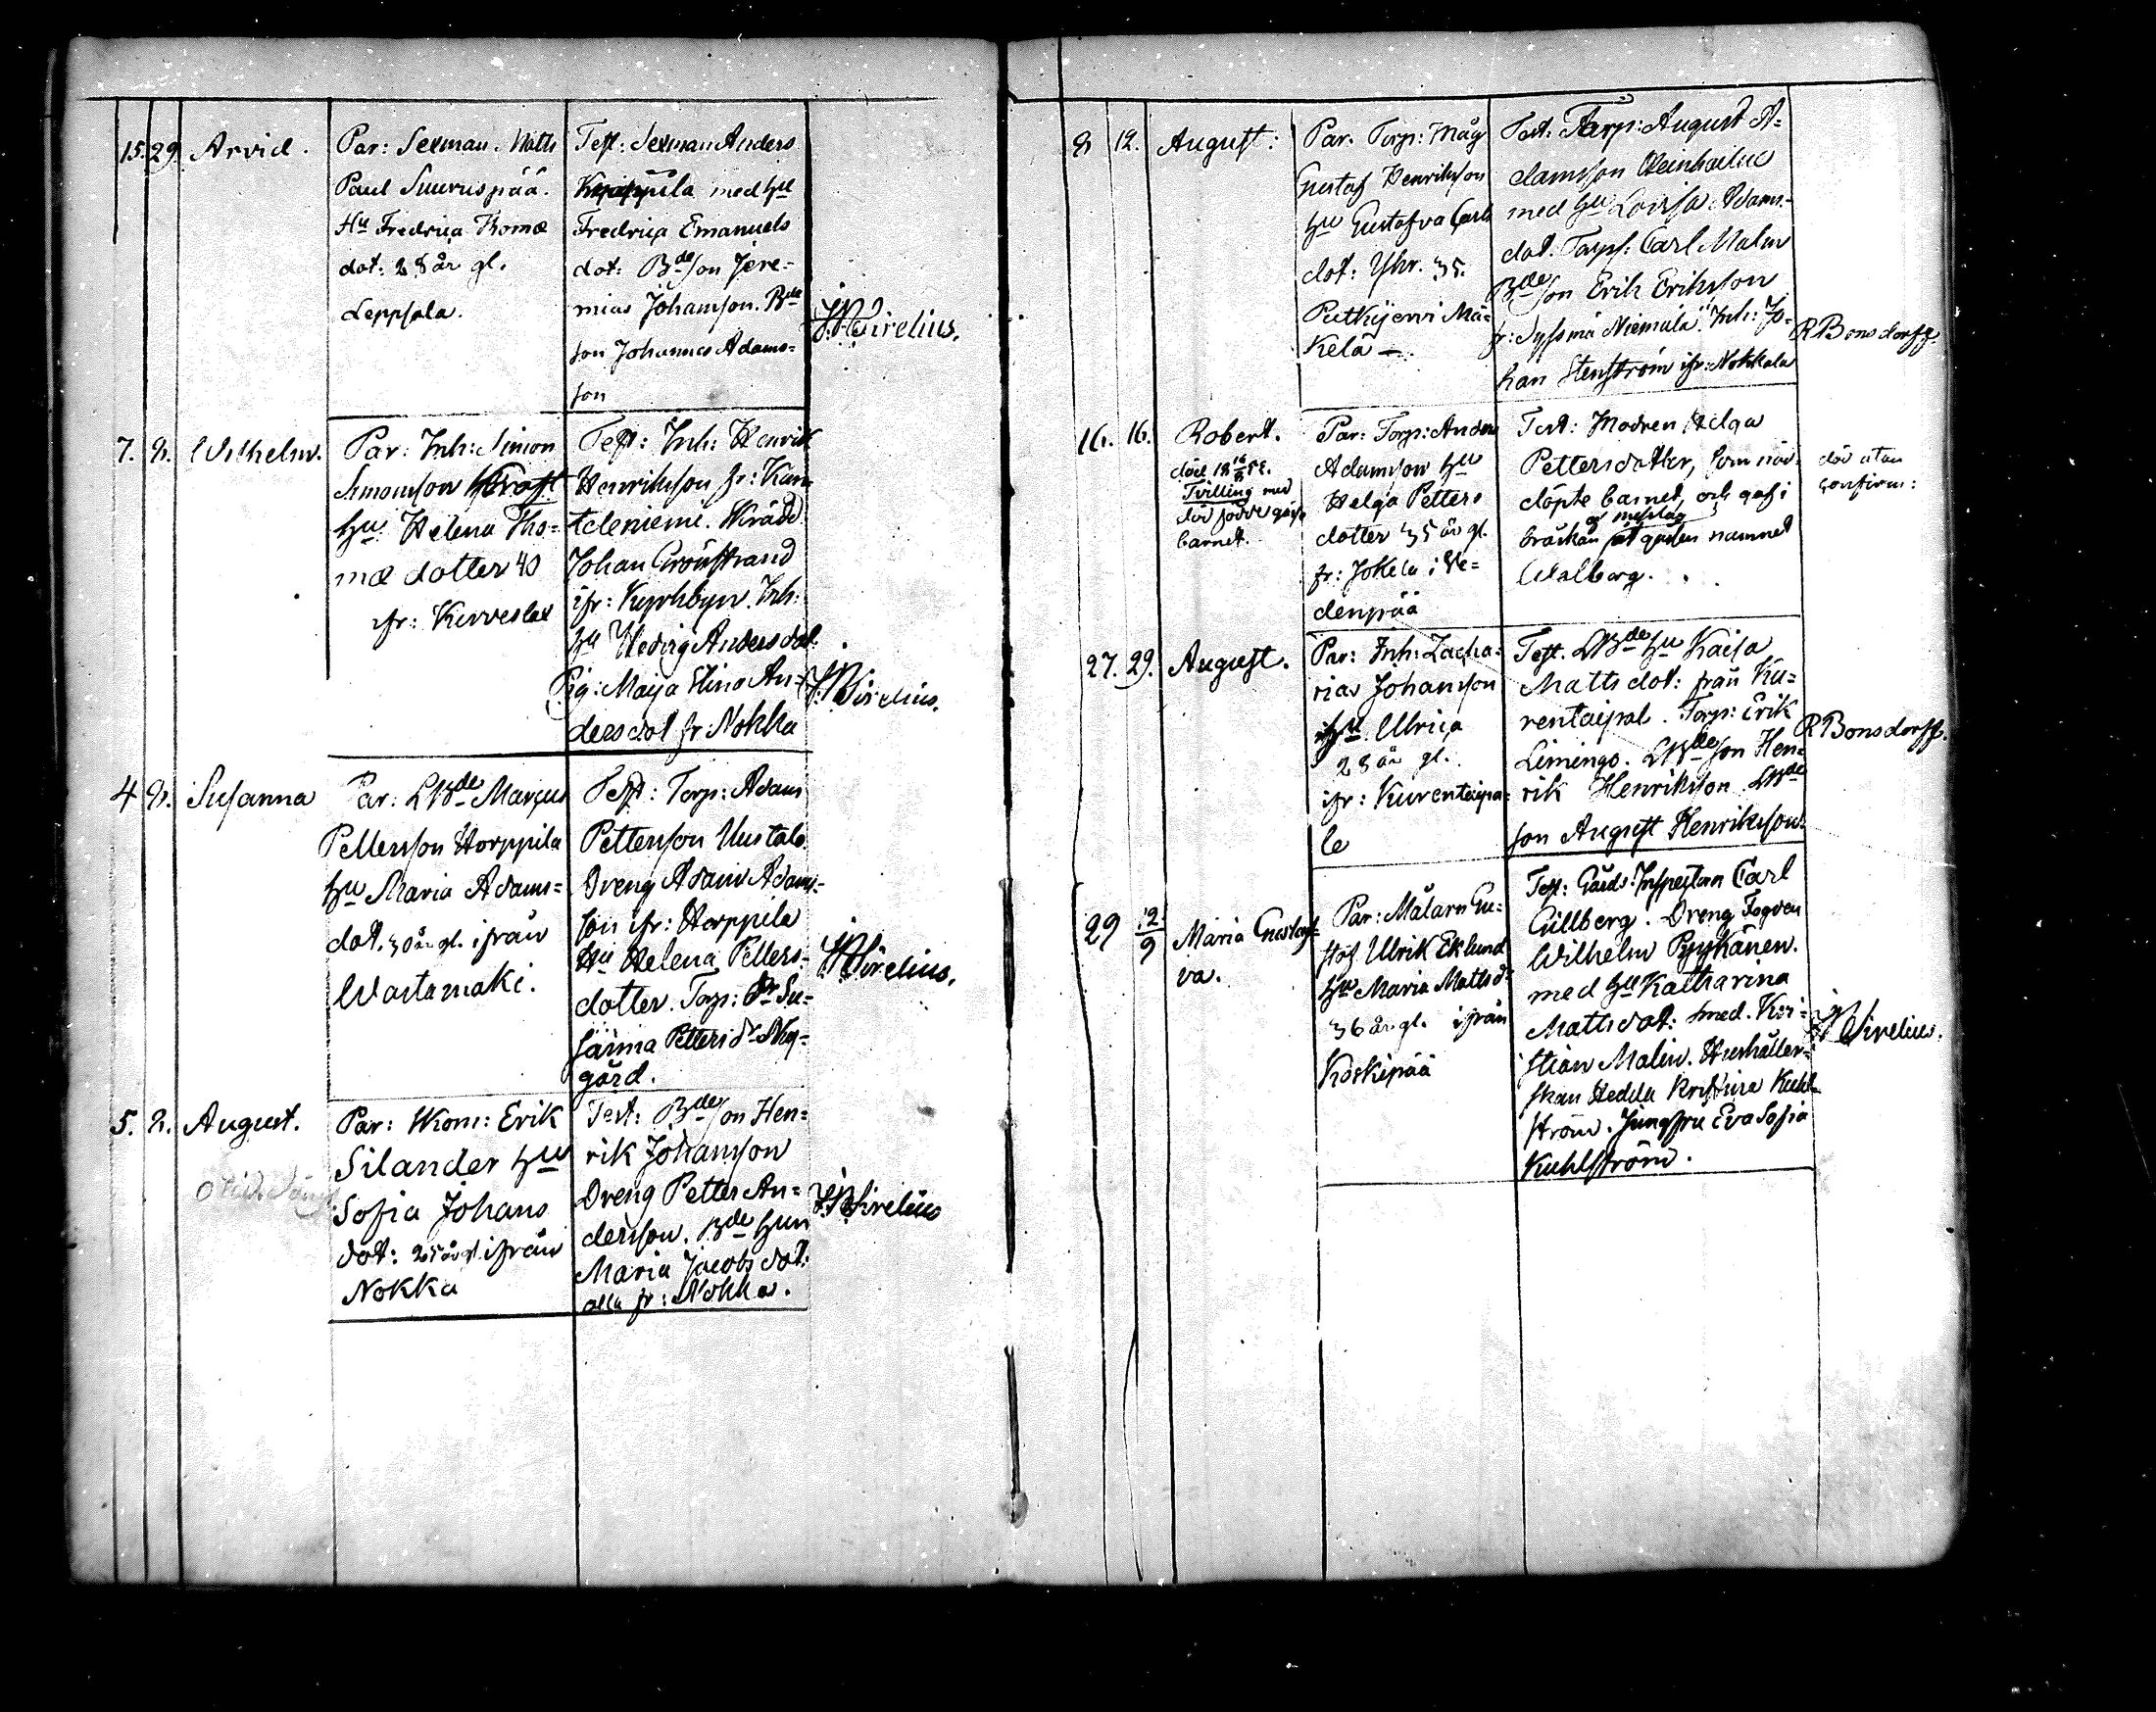 15. 29. Arvid.
Par: Sexman Matts
Paul Suuruspää.
Hu Fredrica Thomæ
dot: 28 år gl.
Leppsala.
Test: Sexman Anders
med hu
Fredrica Emanuels
dot: Bde son Jere=
mias Johansson. Bde
son Johannes Adams=
son
Sirelius.
7. 8. Wilhelm.
Par: Inh: Simon
Simonsson
hu Helena Tho=
mæ dotter 40
ifr: Kirveslax
Test: Inh: Henrik
Henriksson fr: Kan
teleniemi. Skrädd
Johan Grönstrand
ifr: Kyrkbyn. Inh:
hu Hedvig Andersdot.
Pig: Maija Elina An=
dersdot fr: Nokka
Sirelius.
4 8. Susanna
Par: LBde Marcus
Pettersson Horppila
hu Maria Adams=
dot. 30 år gl. ifrån
Wartamäki.
Test: Torp: Adam
Pettersson Uustalo
Dreng Adam Adams=
son ifr: Horppila
Hu Helena Petters=
dotter. Torp: Su=
sanna Petters dr Skog=
gård.
Sirelius.
5. 8. August.
Par: Skom: Erik
Silander hu
Sofia Johans
dot: 25 år gl. ifrån
Nokka
Test: Bde son Hen=
rik Johansson
Dreng Petter An=
dersson. Bde hun
Maria Jacobs dot:
alla fr: Nokka.
Sirelius
8 12. August:
Par. Torp: Måg
Gustaf Henriksson
hu Gustafva Carls
dot: 35.
Putkijervi Mä=
kelä —
Test: Torp: August A=
damsson Heinhailuo
med hu Lovisa Adams=
dot. Torp: Carl Malm
Bde son Erik Eriksson
fr: Sysmä Niemälä. Inh: Jo=
han Stenström ifr: Nokkala
R Bonsdorff.
16. 16. Robert.
Tvilling med
barnet.
Par: Torp: Anders
Adamsson hu
Helga Petters
dotter 35 år gl.
fr: Jokela i We=
denpää
Test: Modren Helga
Pettersdotter, som nöd
döpte barnet, och gaf i
namnet
Walborg.
död utan
confirm:
27. 29. August.
Par: Inh: Zacha=
rias Johansson
hu Ulrica
28 år gl.
ifr: Kurentaipa=
le
Test. LBde hu Kaisa
Matts dot: från Ku=
rentaipal. Torp: Erik
Limingo. LBde son Hen=
rik Henriksson LBde
son August Henriksson.
R Bonsdorff.
29 12/9 Maria Gustaf=
va.
Par: Målarn Gu=
staf Ulrik Eklund
hu Maria Mattsd:
36 år gl. ifrån
Koskipää
Test: Gårds: Inspectorn Carl
Gillberg. Dreng Fogden
Wilhelm Pyykänen.
med hu Katharina
Mattsdot: smed. Kri=
stian Malin. Hushåller=
skan Hedda Kristina Kuhl
ström. Jungfru Eva Sofia
Kuhlström.
Sirelius.